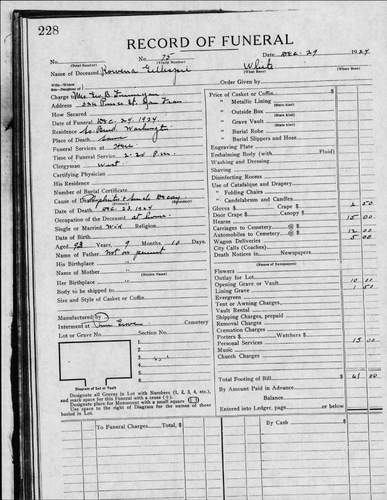 228
RECORD OF FUNERAL
No. No. 75 Date Dec. 29 1924
(Total Number) (Yearly Number)
Name of Deceased Rowena Gillespie White
(What Race)
Wife—Widow
Son—Daughter of Order Given by
Charge Mrs. Geo. B.
Address San Fran
How Secured
Date of Funeral Dec. 29, 1924.
Residence So. Bend Washington
Place of Death Same
Funeral Services at Here
Time of Funeral Service 2-30 P.M.
Clergyman West
Certifying Physician
His Residence
Number of Burial Certificate
Cause of Death Nephritis + Senile Decay
(Contributory)
Date of Death Dec. 27, 1924
Occupation of the Deceased at home
Single or Married Wid Religion
Date of Birth
Aged 93 Years, 9 Months, 10 Days
Name of Father Not on permit
His Birthplace
Name of Mother
(Maiden Name)
Her Birthplace
Body to be shipped to
Size and Style of Casket or Coffin
Manufactured by
Interment at Fern Cemetery
Lot or Grave No. Section No.
1.
2.
3.
4.
5.
6.
Diagram of Lot or Vault
Designate all Graves in Lot with Numbers (1, 2, 3, 4, etc.),
and mark space for this Funeral with a cross (+).
Designate place for Monument with a small square (□)
Use space to right of Diagram for names of those
buried in Lot.
Price of Casket or Coffin
" Metallic Lining
(State kind)
" Outside Box
(State kind)
" Grave Vault
(State kind)
" Burial Robe
(State kind)
" Burial Slippers and Hose
Engraving Plate
Embalming Body (with Fluid)
Washing and Dressing
Shaving
Disinfecting Rooms
Use of Catafalque and Drapery
" Folding Chairs
" Candelabrum and Candles
Gloves $ Crape $ 2 50
Door Crape $ Canopy $
Hearse 15 00
Carriages to Cemetery @ $
Automobiles to Cemetery @ $ 12 00
Wagon Deliveries 5 00
City Calls (Coaches)
Death Notices in Newspapers
Flowers
Outlay for Lot
Opening Grave or Vault 10 00
Lining Grave 1 50
Evergreen
Tent or Awning Charges
Vault Rental
Shipping Charges, prepaid
Removal Charges
Cremation Charges
Porters $ Watchers $
Personal Services 15 00
Music
Church Charges
Total Footing of Bill $ 61 00
By Amount Paid in Advance
Balance
Entered into Ledger, page or below.
To Funeral Charges, Total $ By Cash $